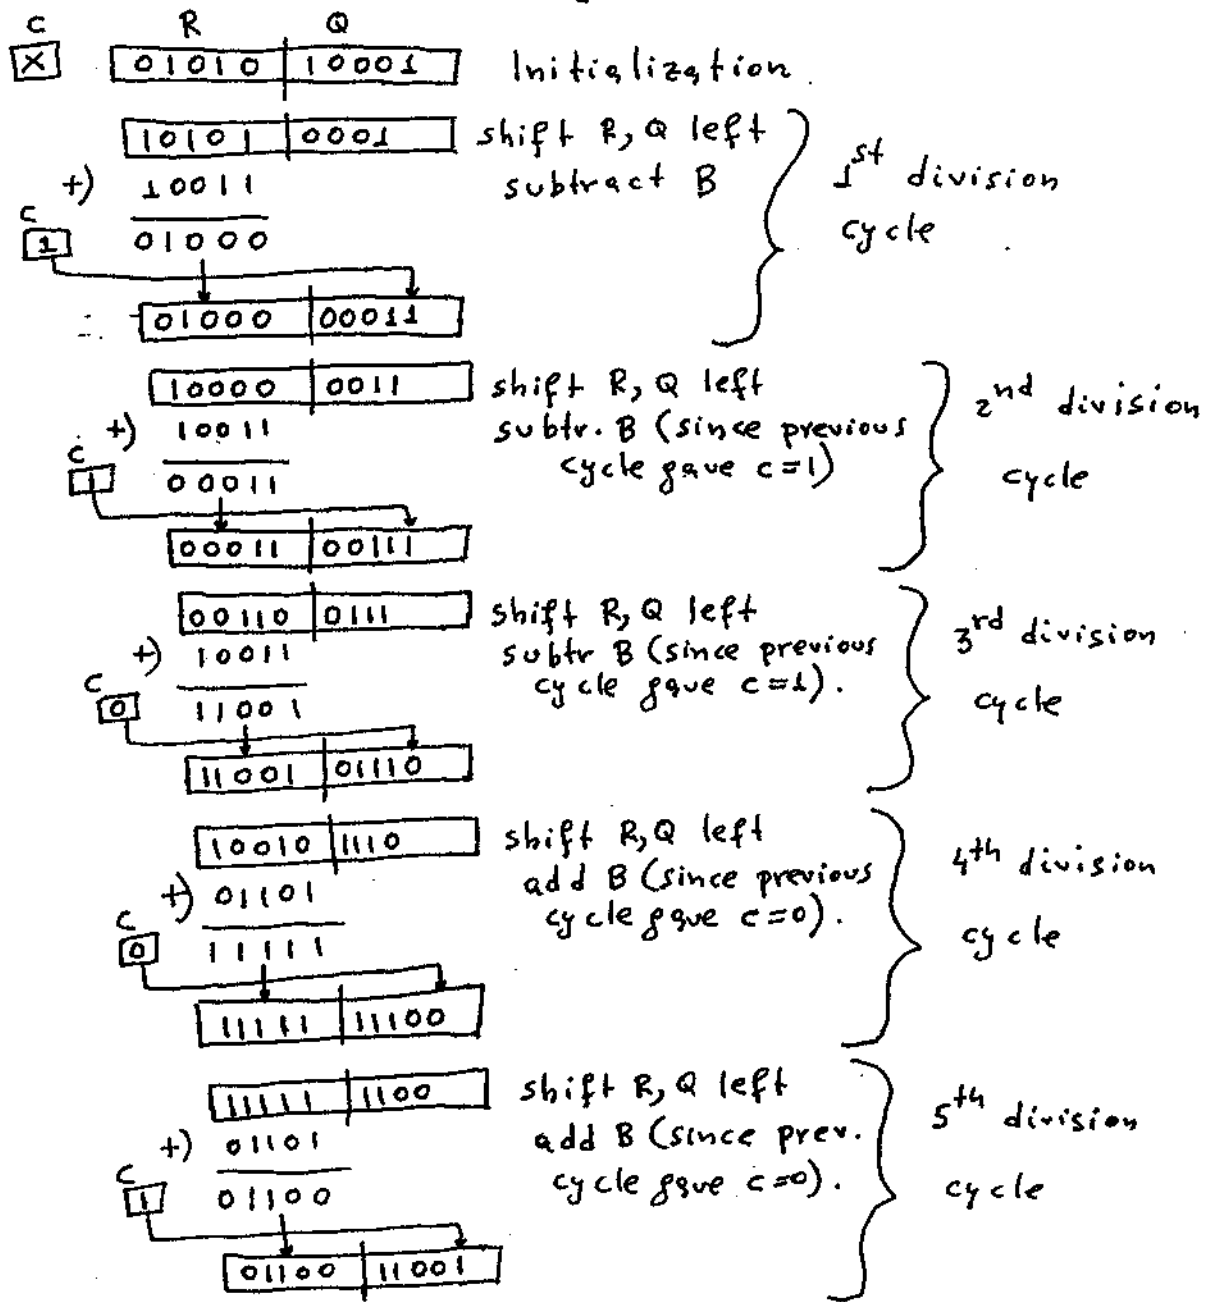 C R Q
X 01010 10001 Initialization.
10101 0001 shift R, Q left
+) 10011 subtract B
C
1 01000
1st division
cycle
01000 00011
10000 0011 shift R, Q left
+) 10011 subtr. B (since previous
C cycle gave c=1)
1 00011
2nd division
cycle
00011 00111
00110 0111 shift R, Q left
+) 10011 subtr B (since previous
C cycle gave c=1).
0 11001
3rd division
cycle
11001 01110
10010 1110 shift R, Q left
+) 01101 add B (since previous
C cycle gave c=0).
0 11111
4th division
cycle
11111 11100
11111 1100 shift R, Q left
+) 01101 add B (since prev.
C cycle gave c=0).
1 01100
5th division
cycle
01100 11001